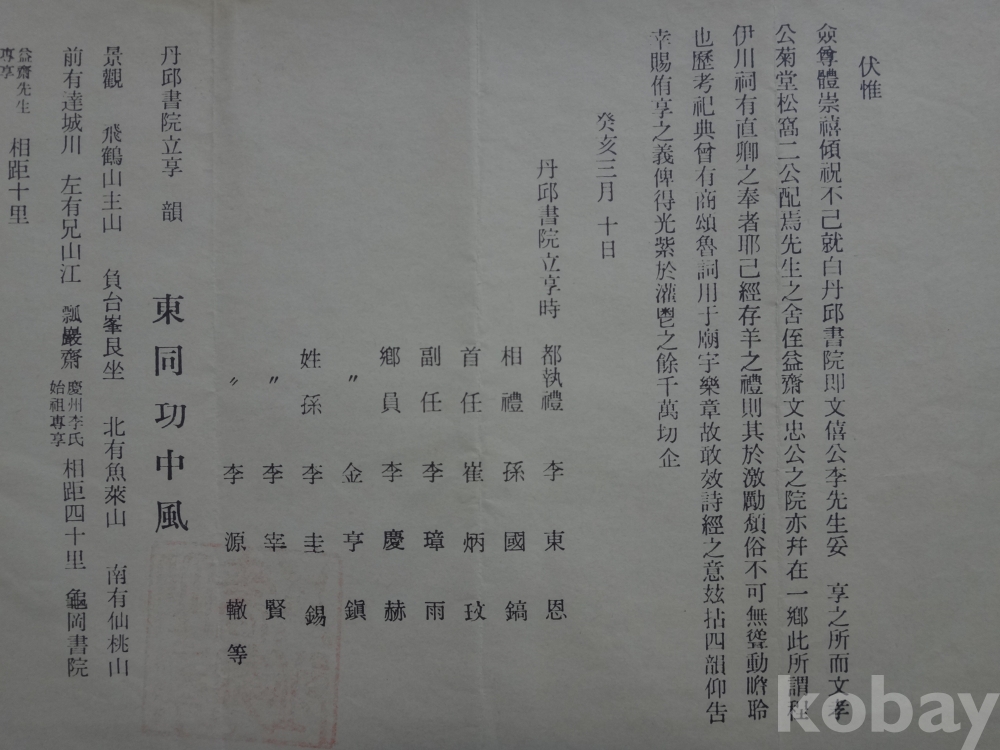 伏惟
僉尊體崇禧傾祝不已就白丹邱書院即文僖公李先生妥　享之所而文孝
公菊堂松窩二公配焉先生之舍侄益齋文忠公之院亦幷在一鄉此所謂程
伊川祠有直卿之奉者耶已經存羊之禮則其於激勵頹俗不可無聳動瞻聆
也歷考祀典曾有商頌魯詞用于廟宇樂章故敢效詩經之意玆拈四韻仰告
幸賜侑享之義俾得光紫於灌鬯之餘千萬切企
癸亥三月　十日
丹邱書院立享時　都執禮　李東恩
相禮　孫國鎬
首任　崔炳玟
副任　李璋雨
鄉員　李慶赫
〃　金亨鎭
姓孫　李圭錫
〃　李宰賢
〃　李源轍等
丹邱書院立享　韻　東同功中風
景觀　飛鶴山主山　負台峯艮坐　北有魚萊山　南有仙桃山
前有達城川　左有兄山江　瓢巖齋　慶州李氏始祖專享　相距四十里　龜岡書院
益齋先生專享　相距十里
kobay